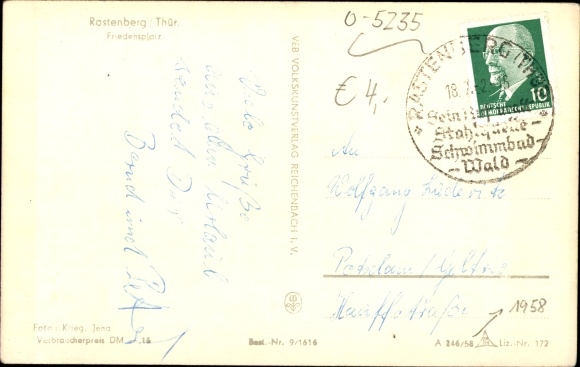 Rastenberg / Thür.
Friedensplatz
O-5235
€ 4,-
RASTENBERG (THÜR)
18.
10
DEUTSCHE
DEMOKRATISCHE REPUBLIK
Stahlquelle-
Schwimmbad-
-Wald-
Viele Grüße
aus dem Urlaub
sendet Dir
Bernd und
VEB VOLKSKUNSTVERLAG REICHENBACH I. V.
An
Wolfgang
Potsdam/
1958
Foto: Krieg, Jena
Verbraucherpreis DM -,15
Best.-Nr. 9/1616
A 246/58
Liz.-Nr. 172